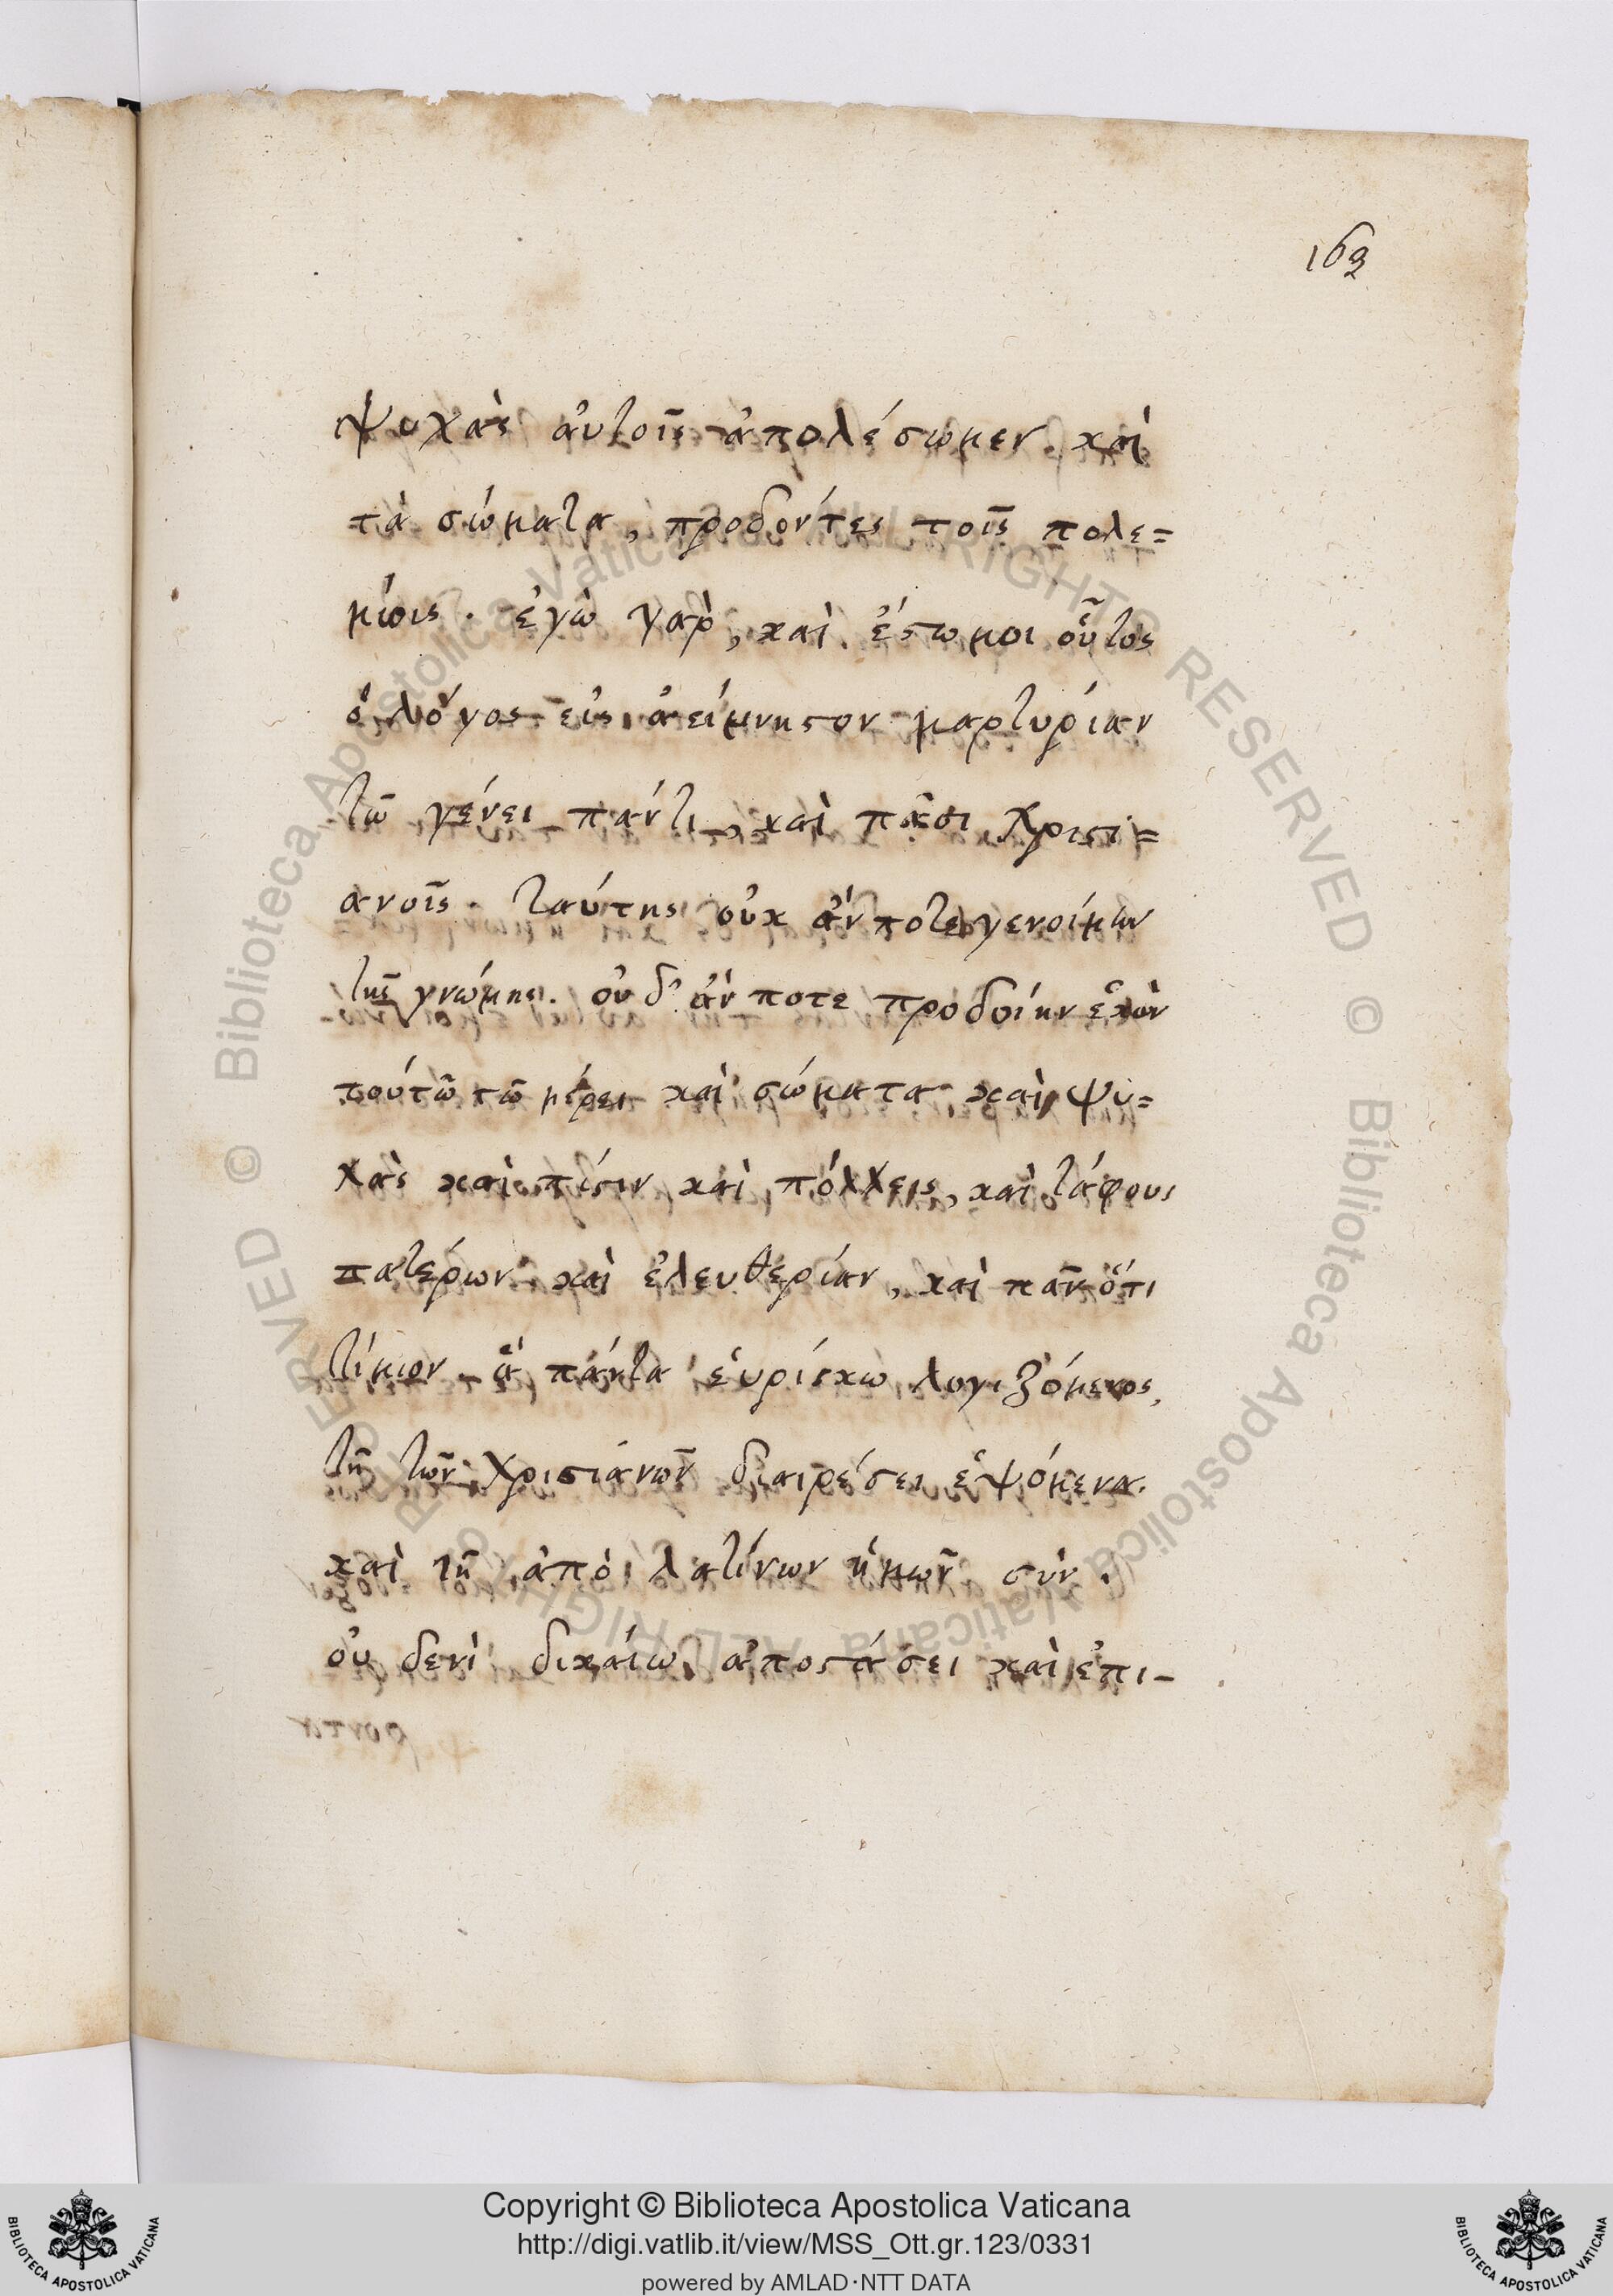 163
ψυχὰς ἀυτοῖς ἀπολέσωμεν καὶ
τὰ σώματα, προδόντες τοῖς πολε=
μίοις. ἐγὼ γαρ, καὶ ἔστω μοι οὗτος
ὁ λόγος εἰς ἀείμνηστον μαρτυρίαν
τῶ γένει παντι, καὶ πᾶσι Χριστι=
ανοῖς. ταύτης οὐκ ἄν ποτε γενοίμην
τῆς γνώμης. οὐ δ' ἄν ποτε προδοίην ἑκὼν
τούτω τῶ μέρει καὶ σώματα καὶ ψυ=
χὰς καὶ πίστιν καὶ πόλλεις, καὶ τάφους
πατέρων καὶ ἐλευθερίαν, καὶ πᾶν ὅτι
τίμιον. ἃ πάντα ἑυρίσκω λογιζόμενος,
τῆ τῶν Χριστιάνῶν διαιρέσει ἑψόμενα.
καὶ τῆ ἀπὸ λατίνων ἡμῶν σύν
οὐ δενὶ δικαίω ἀποστάσει καὶ ἐπι-
Copyright © Biblioteca Apostolica Vaticana
http://digi.vatlib.it/view/MSS_Ott.gr.123/0331
powered by AMLAD·NTT DATA
BIBLIOTECA APOSTOLICA VATICANA
BIBLIOTECA APOSTOLICA VATICANA
© Biblioteca Apostolica Vaticana ALL RIGHTS RESERVED © Biblioteca Apostolica Vaticana ALL RIGHTS RESERVED